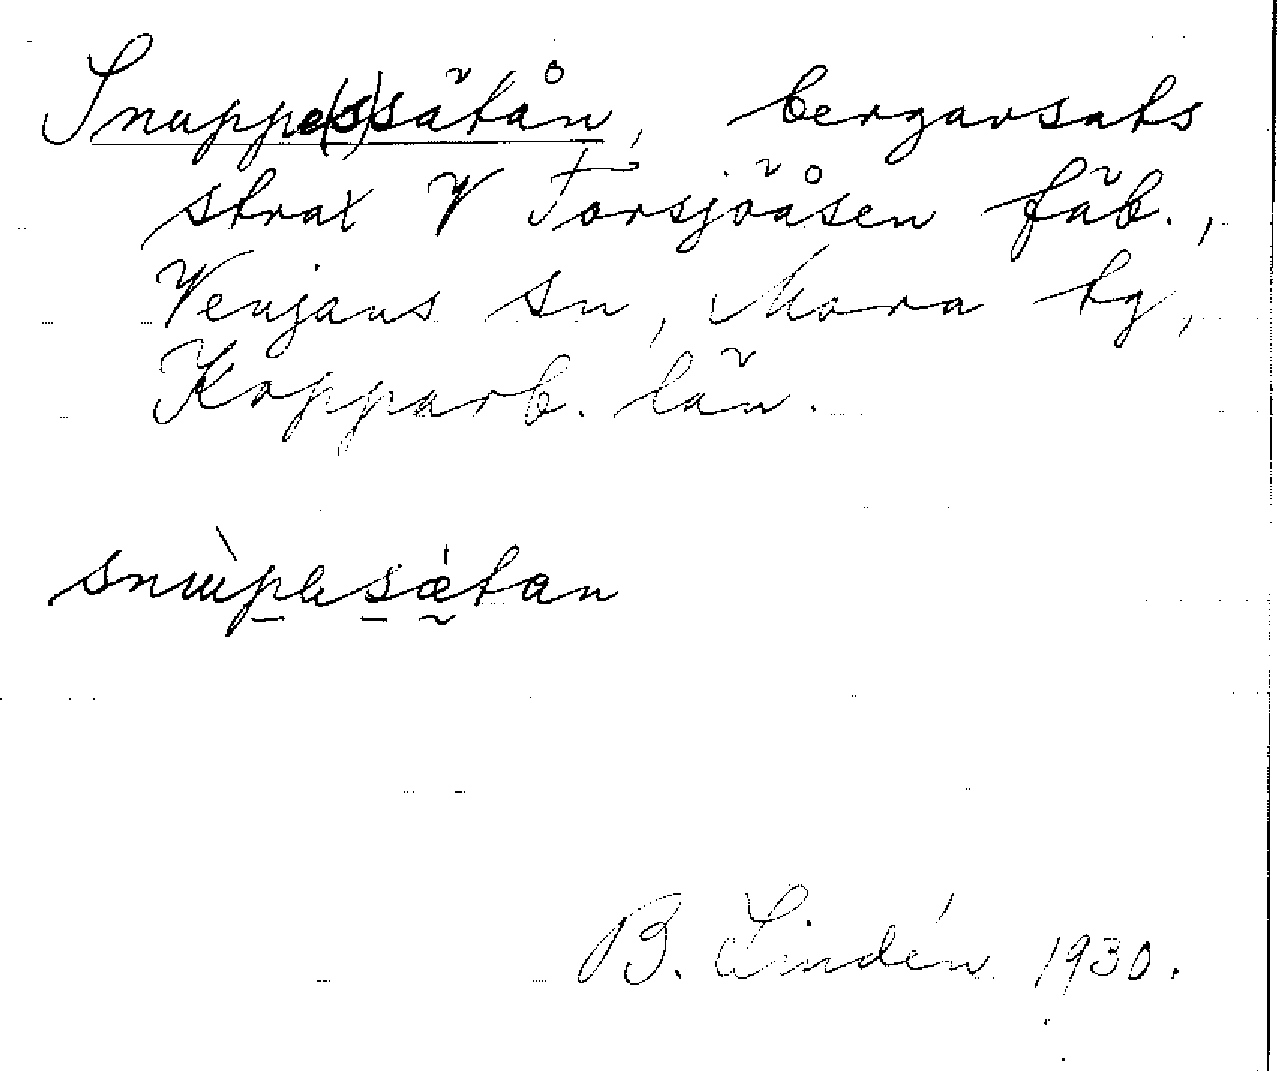 Snuppe(s)sätån, bergavsats
strax V Torsjöåsen fäb.,
Venjans sn, Mora tg,
Kopparb. län.
B. Lindén 1930.